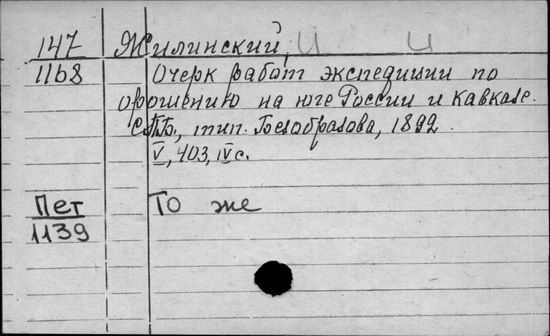 147 Жилинский, И И
1168 Очерк работ экспедиции по
орошению на юге России и Кавказе.
СПБ., тип. Безобразова, 1892.
V, 403, IV с.
Пет То же
1139